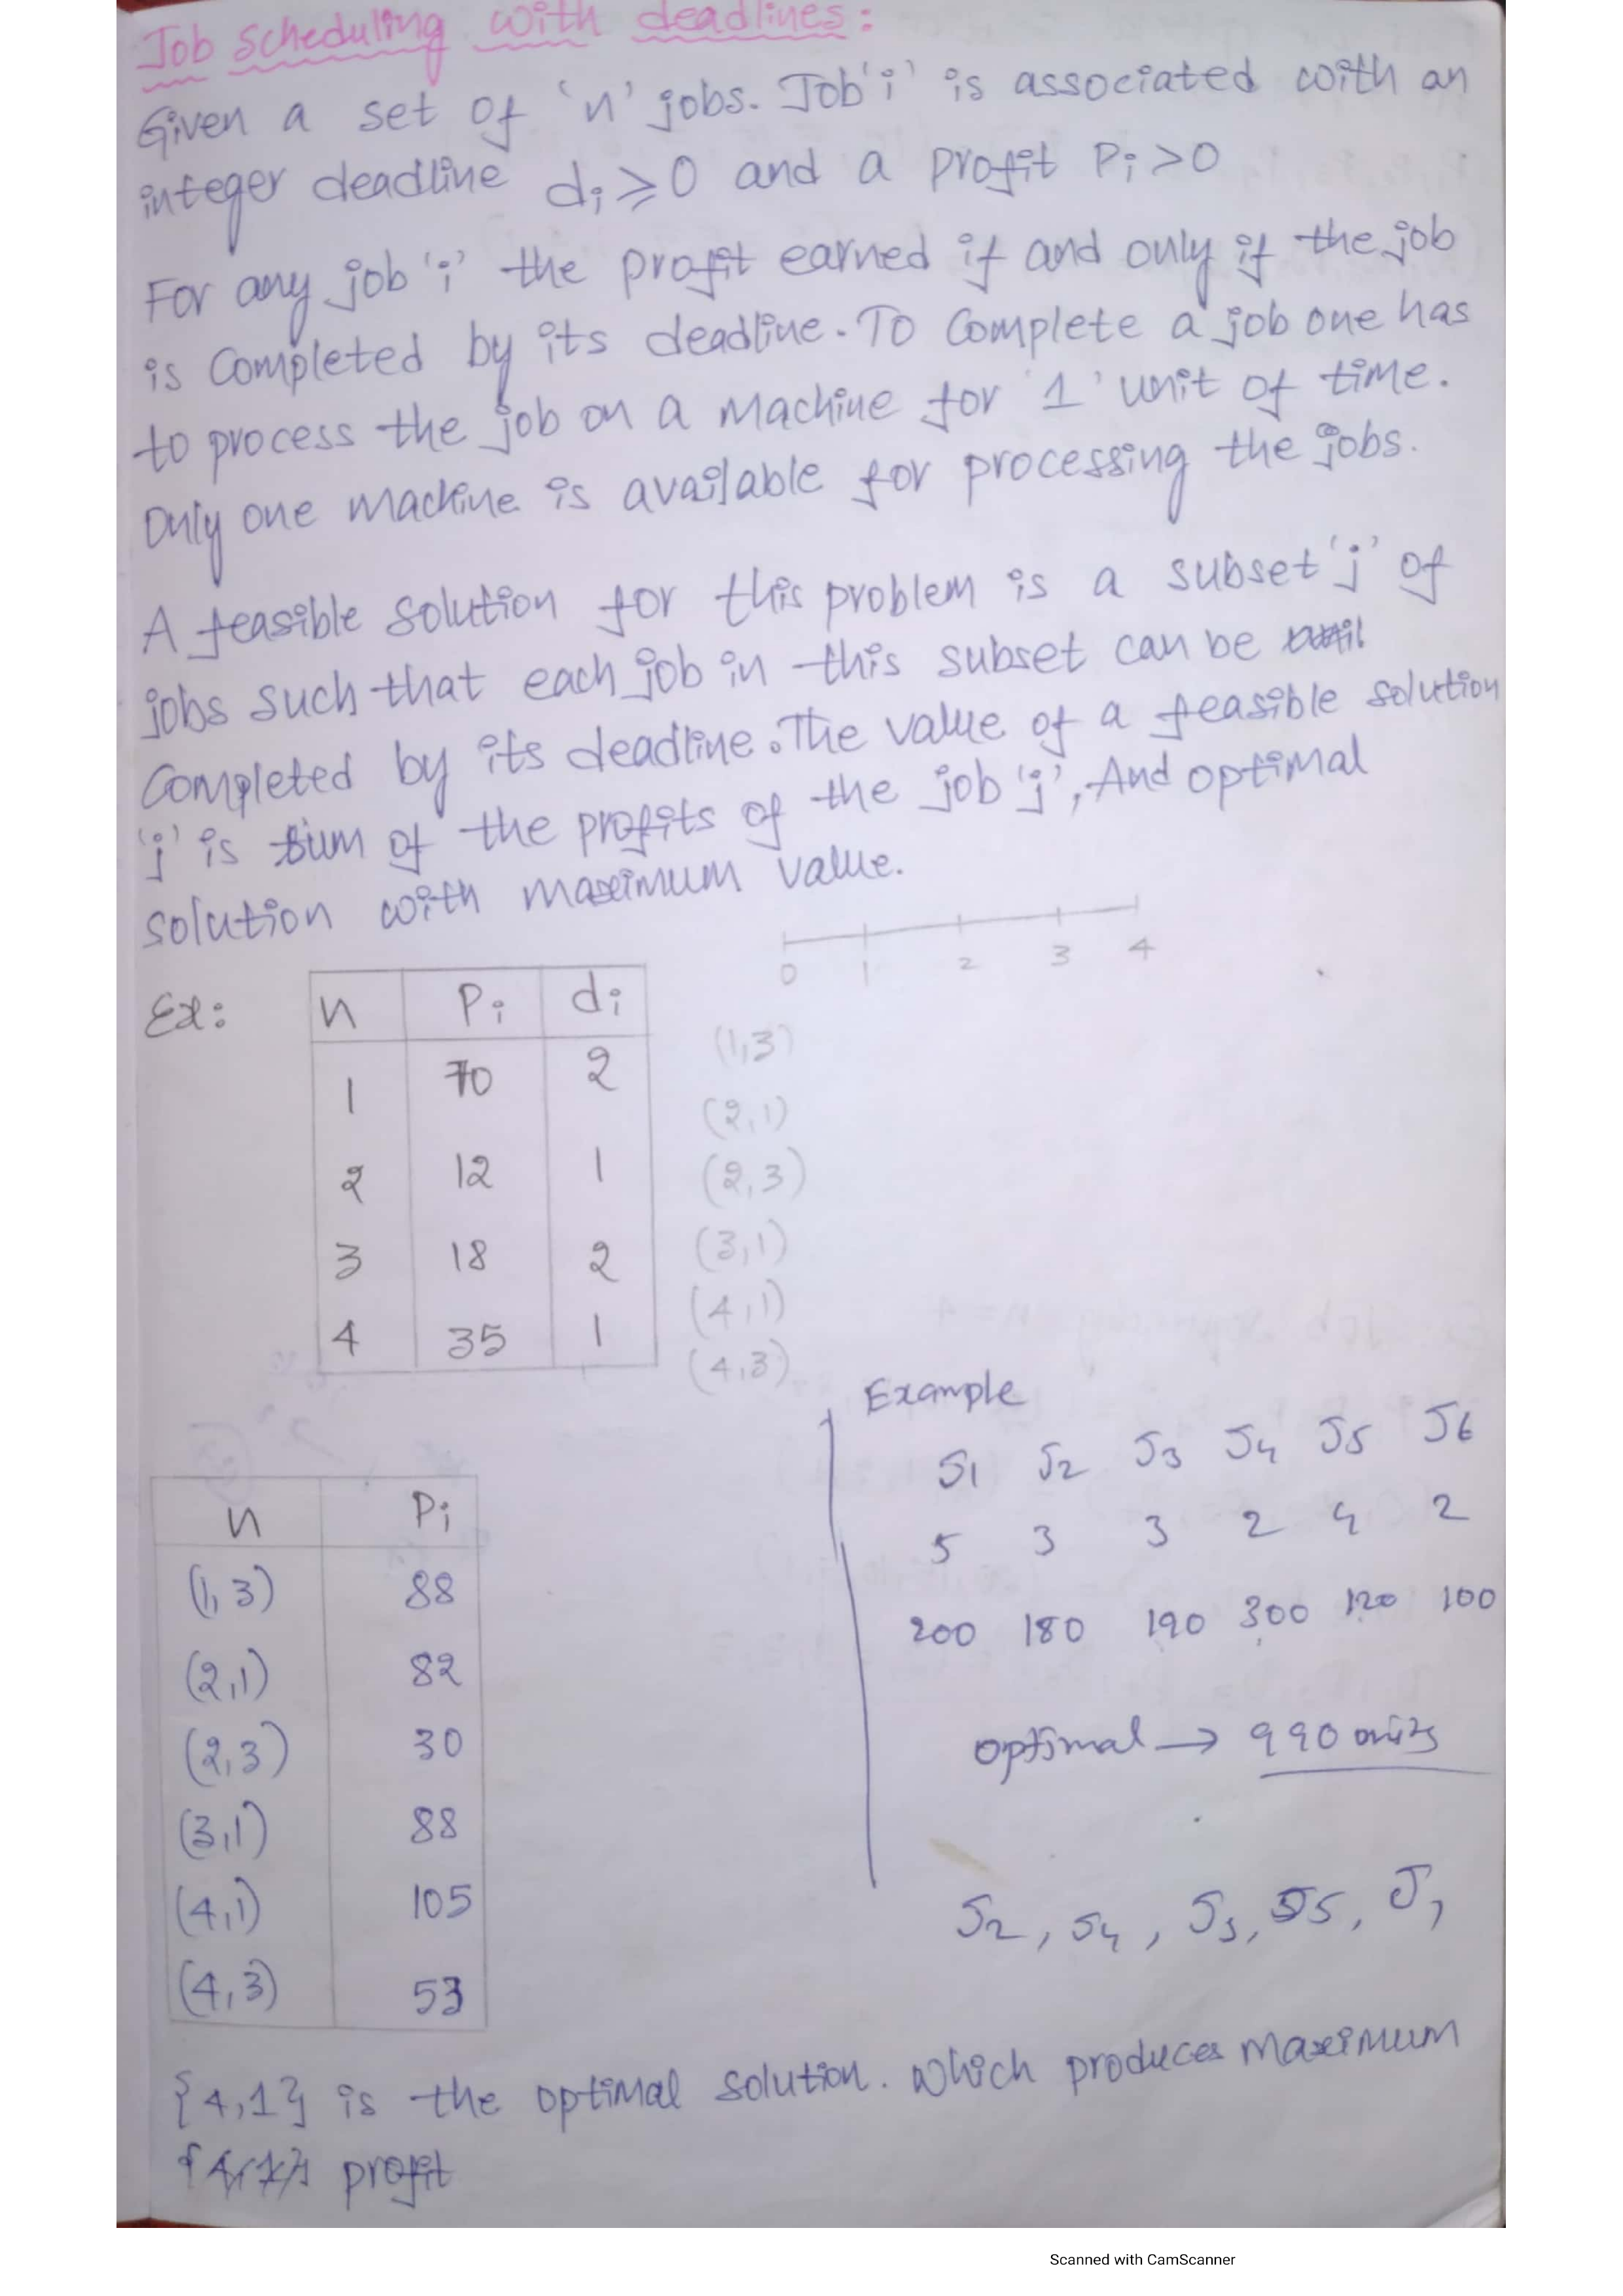 Job Scheduling with deadlines:
Given a set of 'n' jobs. Job 'i' is associated with an
integer deadline di ⩾ 0 and a profit Pi > 0
For any job 'i' the profit earned if and only if the job
is Completed by its deadline. To Complete a job one has
to process the job on a machine for '1' unit of time.
Only one machine is available for processing the jobs.
A feasible solution for this problem is a subset 'j' of
jobs such that each job in this subset can be
Completed by its deadline. The value of a feasible solution
'j' is sum of the profits of the job 'j', And optimal
solution with maximum value.
0 1 2 3 4
Ex:
n Pi di
1 70 2
2 12 1
3 18 2
4 35 1
(1,3)
(2,1)
(2,3)
(3,1)
(4,1)
(4,3)
n Pi
(1,3) 88
(2,1) 82
(2,3) 30
(3,1) 88
(4,1) 105
(4,3) 53
Example
J1 J2 J3 J4 J5 J6
5 3 3 2 4 2
200 180 190 300 120 100
optimal → 990 units
J2, J4, J3, J5, J1
{4,1} is the optimal solution. Which produces maximum
profit
Scanned with CamScanner